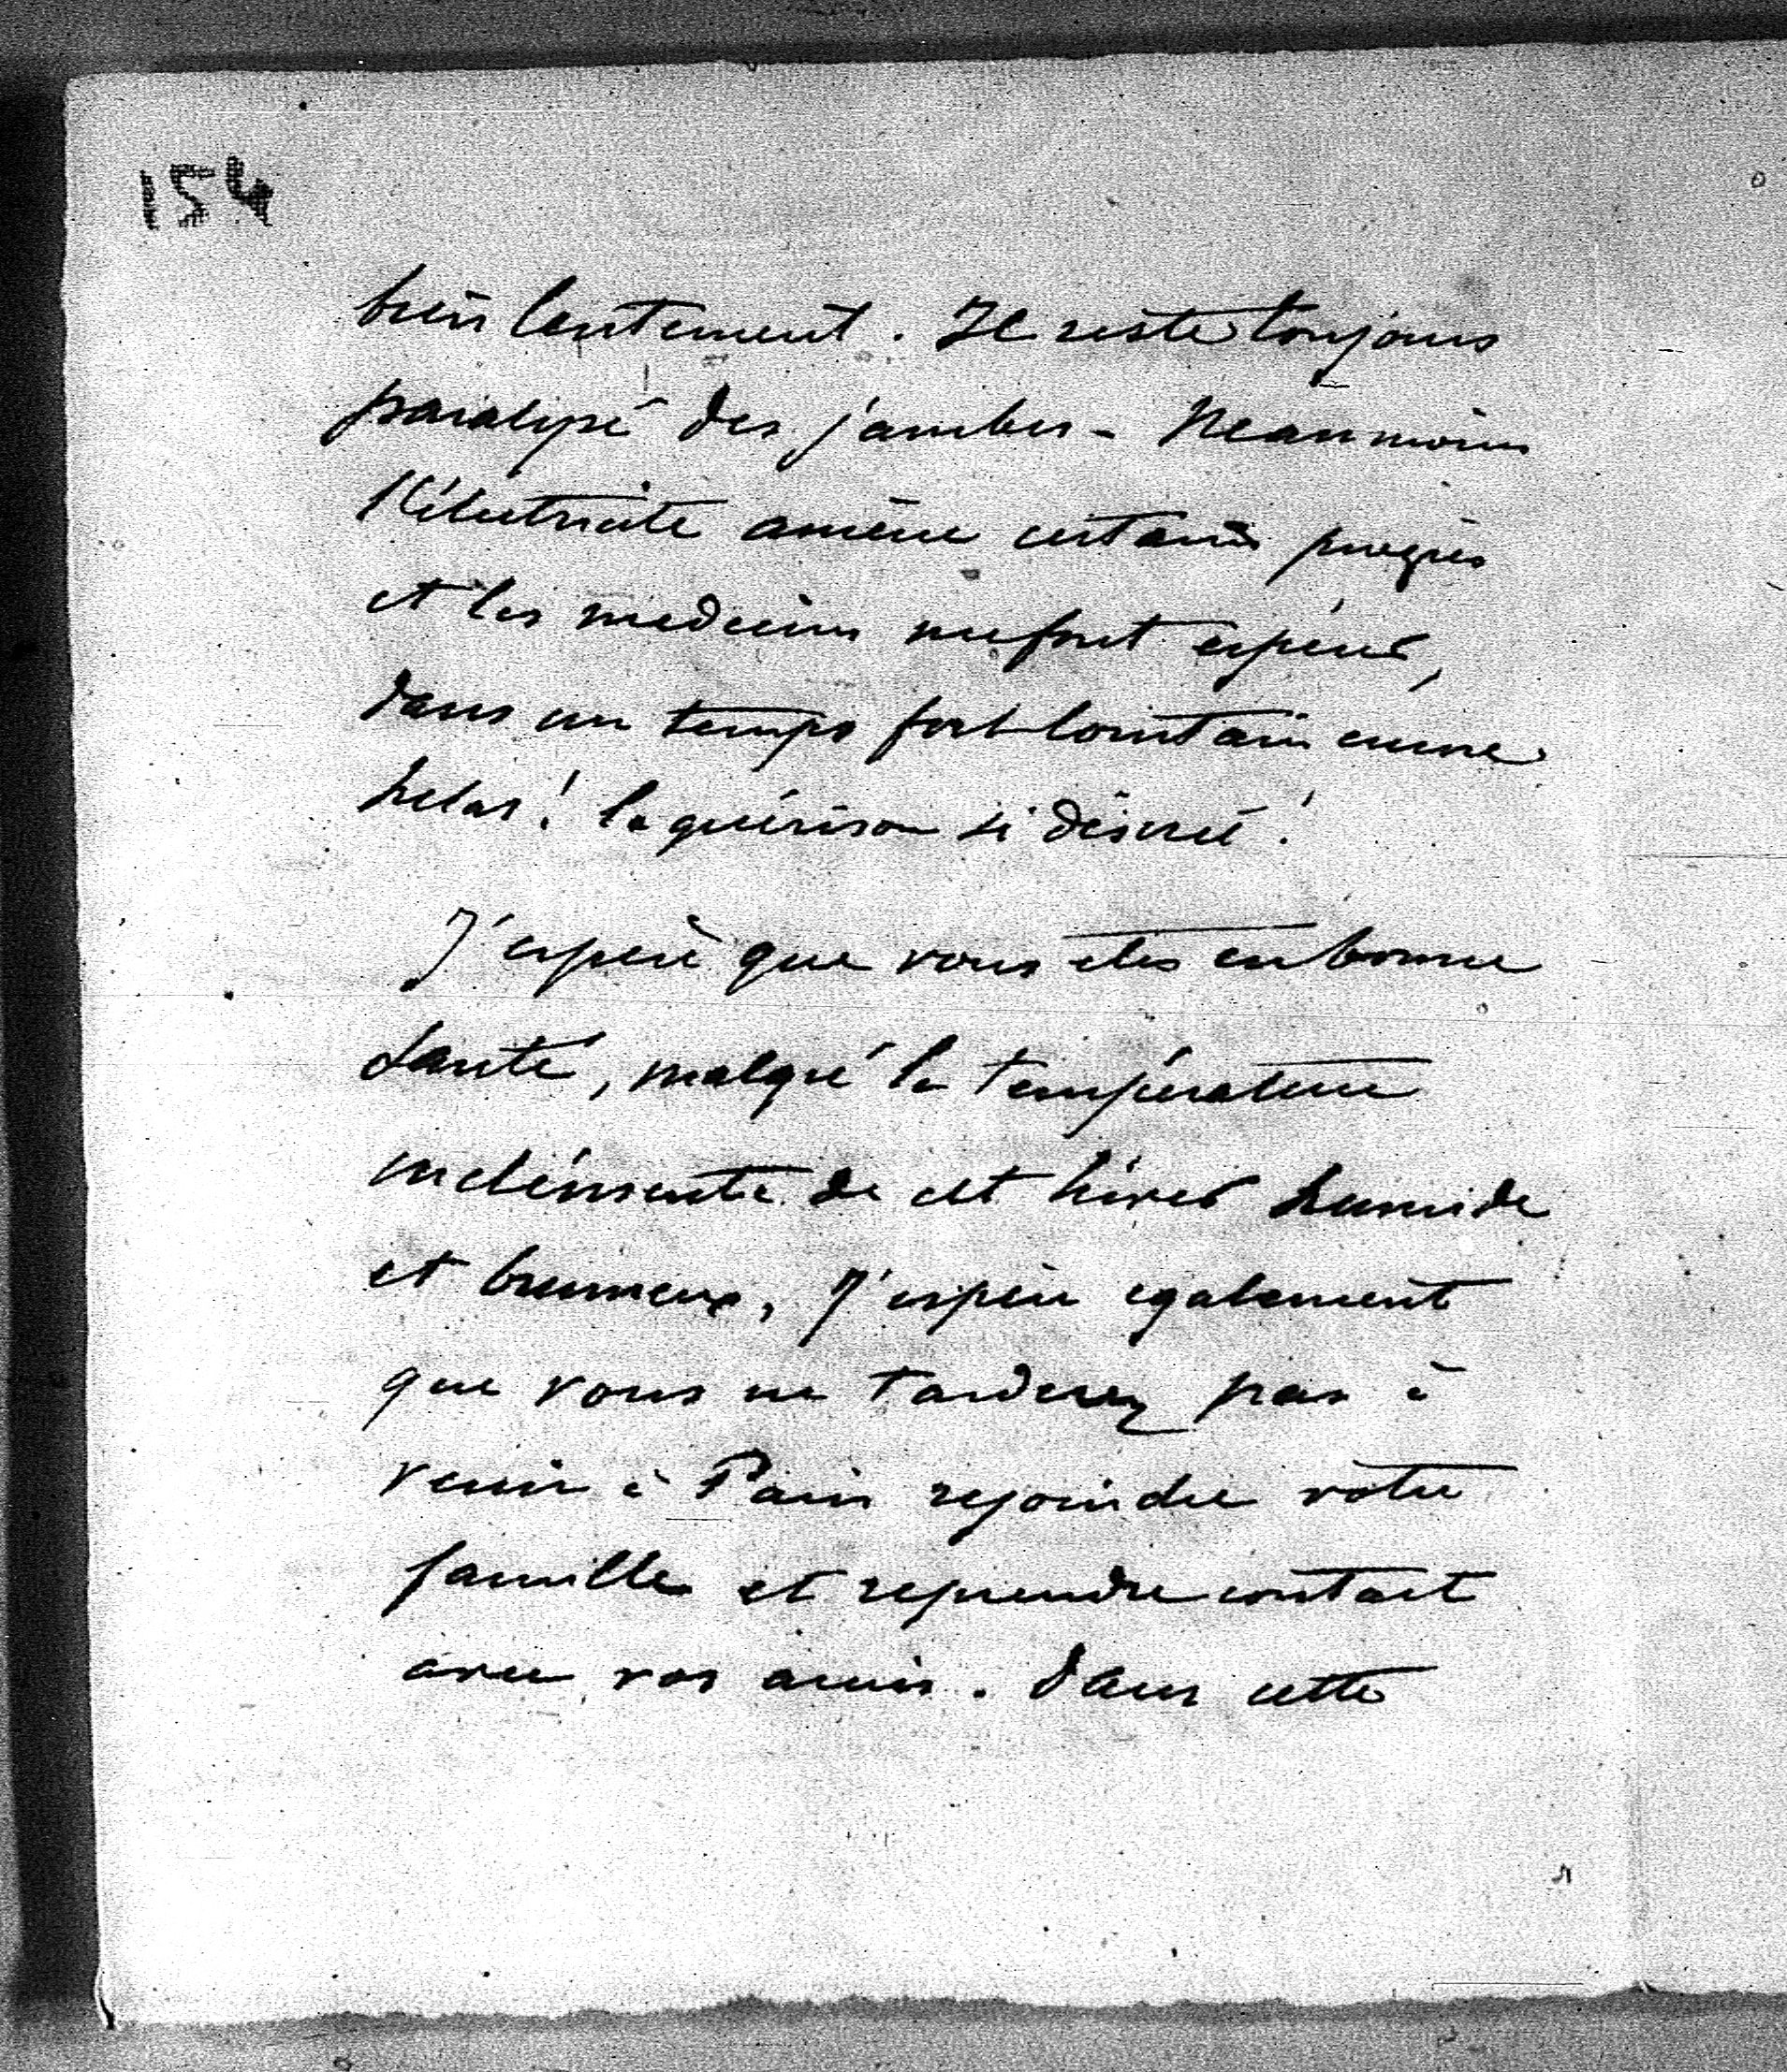 154
bien lentement. Il reste toujours
paralysé des jambes - Neanmoins
l'électricité amène certains progrès
et les medecins me font espérer,
dans un temps fort lointain encore
helas! la guérison si désirée!
J'espère que vous etes en bonne
Santé, malgré la température
inclémente de cet hiver humide
et brumeux, J'espère egalement
que vous ne tarderez pas à
venir à Paris rejoindre votre
famille et reprendre contact
avec vos amis. Dans cette